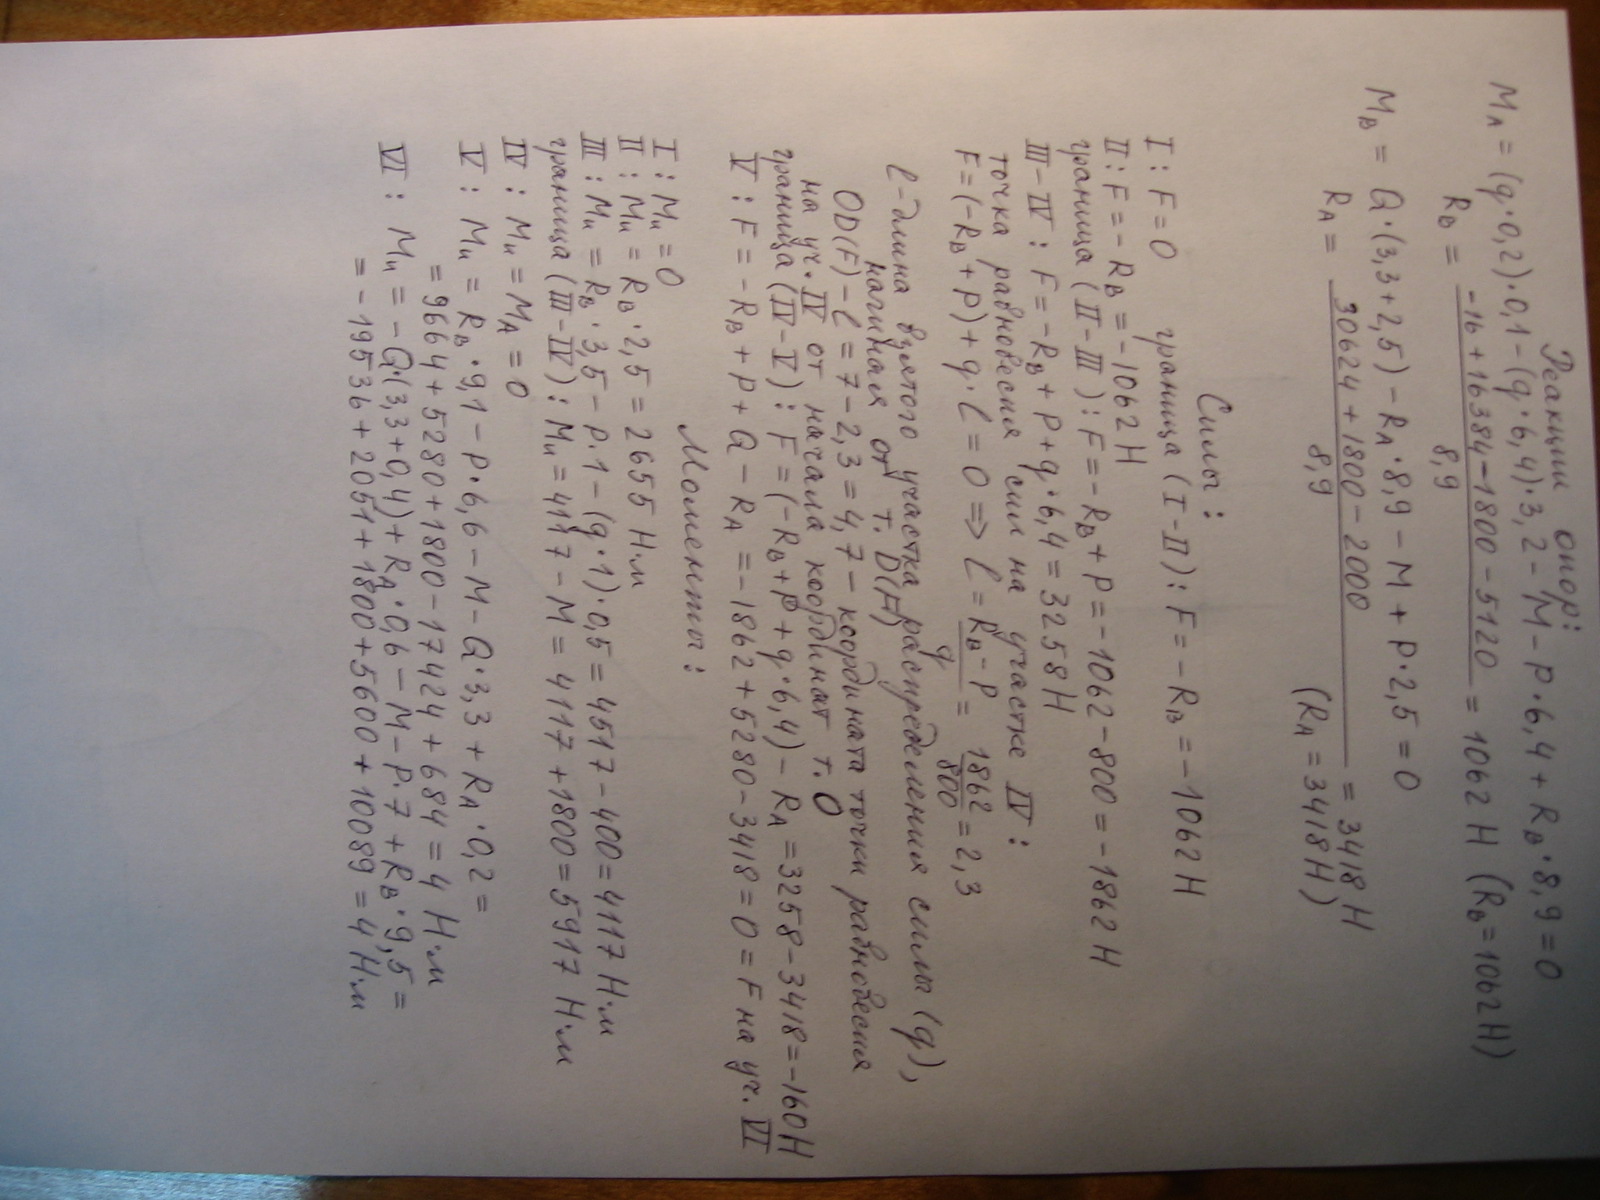 Реакции опор:
M_A = (q·0,2)·0,1 − (q·6,4)·3,2 − M − P·6,4 + R_B·8,9 = 0
R_B = (−16 + 16384 − 1800 − 5120) / 8,9 = 1062 Н (R_B = 1062 Н)
M_B = Q·(3,3 + 2,5) − R_A·8,9 − M + P·2,5 = 0
R_A = (30624 + 1800 − 2000) / 8,9 = 3418 Н
(R_A = 3418 Н)
Силы:
I: F = 0 граница (I−II): F = −R_B = −1062 Н
II: F = −R_B = −1062 Н
граница (II−III): F = −R_B + P = −1062 − 800 = −1862 Н
III−IV: F = −R_B + P + q·6,4 = 3258 Н
точка равновесия сил на участке IV:
F = (−R_B + P) + q·l = 0 => l = (R_B − P) / q = 1862 / 800 = 2,3
l − длина взятого участка распределения силы (q),
начиная от т. D(F)
OD(F) − l = 7 − 2,3 = 4,7 − координата точки равновесия
на уч. IV от начала координат т. О
граница (IV−V): F = (−R_B + P + q·6,4) − R_A = 3258 − 3418 = −160 Н
V: F = −R_B + P + Q − R_A = −1862 + 5280 − 3418 = 0 = F на уч. VI
Моменты:
I: Mи = 0
II: Mи = R_B·2,5 = 2655 Н·м
III: Mи = R_B·3,5 − P·1 − (q·1)·0,5 = 4517 − 400 = 4117 Н·м
граница (III−IV): Mи = 4117 − M = 4117 + 1800 = 5917 Н·м
IV: Mи = M_A = 0
V: Mи = R_B·9,1 − P·6,6 − M − Q·3,3 + R_A·0,2 =
= 9664 + 5280 + 1800 − 17424 + 684 = 4 Н·м
VI: Mи = −Q·(3,3 + 0,4) + R_A·0,6 − M − P·7 + R_B·9,5 =
= −19536 + 2051 + 1800 + 5600 + 10089 = 4 Н·м